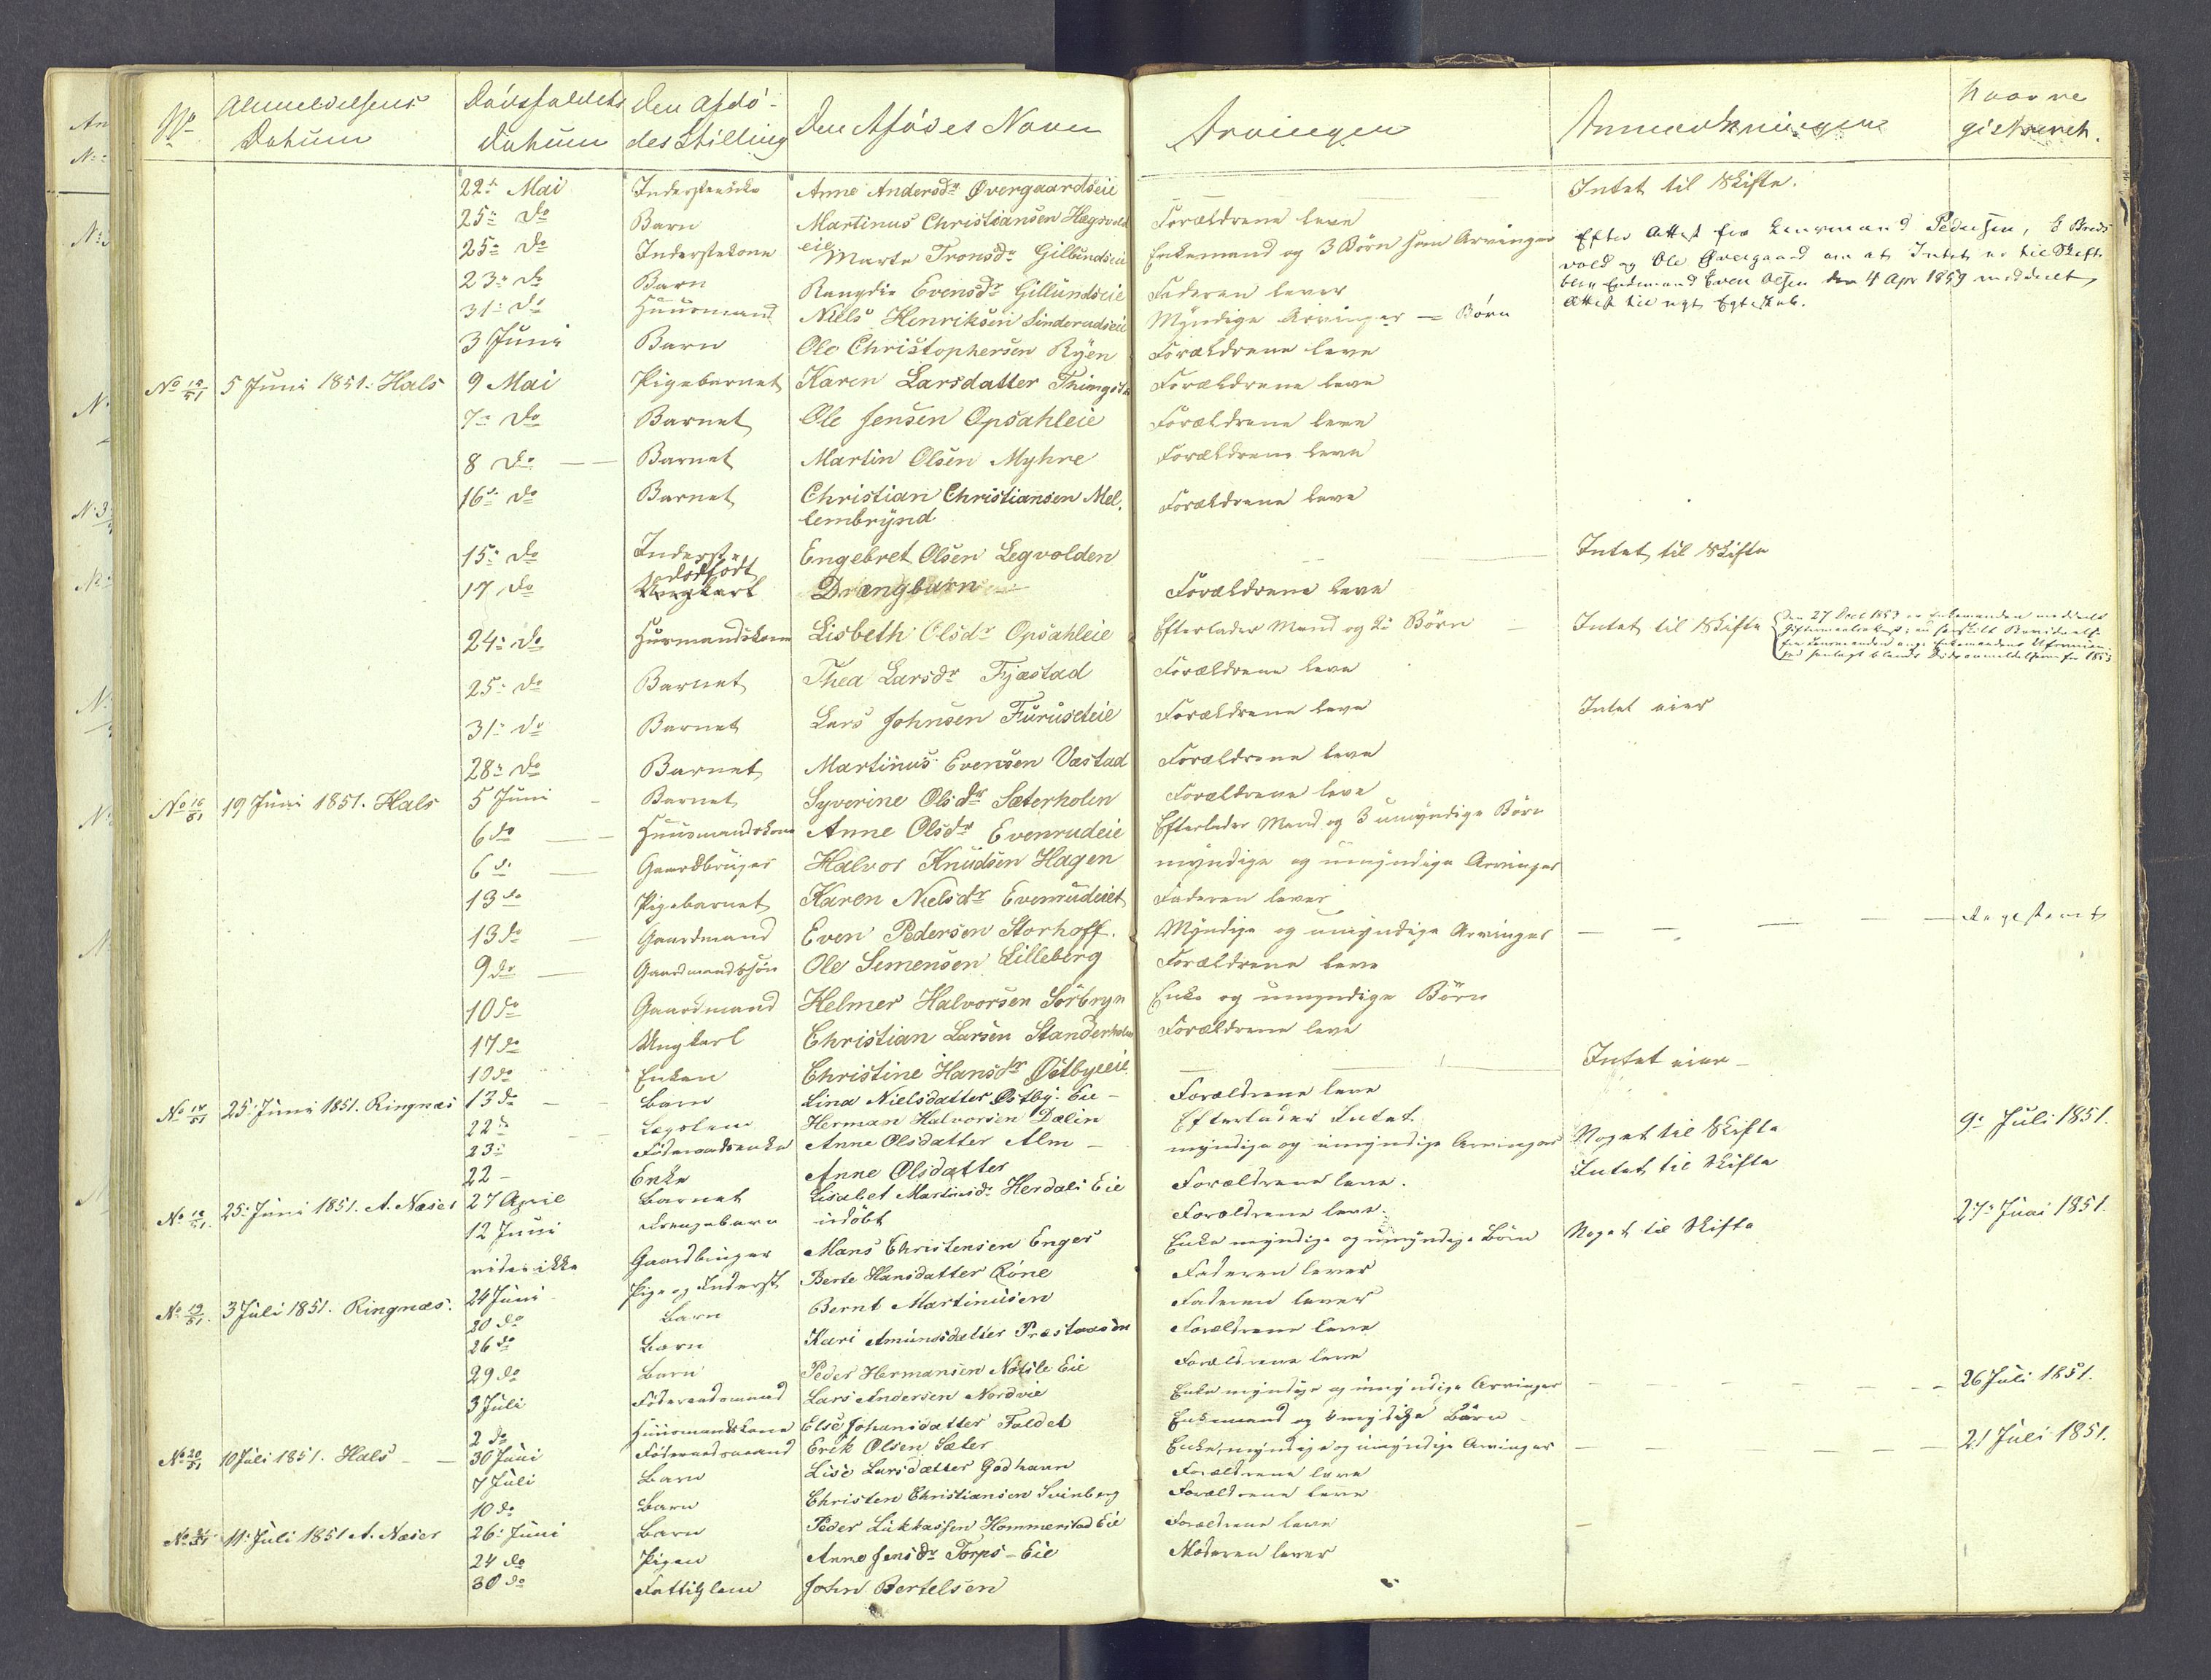 No Anmeldelsens Datum Dødsfaldets Datum Den Afdø-des Stilling Den Afdødes Navn Arvinger Anmærkninger Naar registreret.
22de Mai Inderstenke Anne Andersdr Øvergaardseie Intet til Skifte.
25de do Barn Martinus Christiansen Hægsvold eie Forældrene leve
25de do Inderstekone Marte Tronsdr Gillundseie Enkemand og 3 Börn som Arvinger Efter Attest fra Lensmand Pedersen, E
vold og Ole Øvergaard om at Intet er til Skifte
23de do Barn Rangdie Evensdr Gillundseie Faderen lever blev Enkemand Even Olsen den 4 Apr 1859 meddelt
31te do Huusmand Niels Henriksen Linderudseie Myndige Arvinger — Börn Attest til nyt Egteskab.
3 Juni Barn Ole Christophersen Ryen Forældrene leve
No 15/51 5 Juni 1851. Hals 9 Mai Pigebarnet Karen Larsdatter Forældrene leve
7de do Barnet Ole Jensen Opsahleie Forældrene leve
8 do — Barnet Martin Olsen Myhre Forældrene leve
16de do Barnet Christian Christiansen Mel-
lembrynd Forældrene leve
15de do Inderst Engebret Olsen Legvolden Intet til Skifte
17 do dödfödt Drengbarn Forældrene leve
24de do Huusmandskone Lisbeth Olsdr Opsahleie Efterlader Mand og 2 Börn Intet til Skifte Den 27 Decb 1853 er Enkemanden meddeelt
25de do Barnet Thea Larsdr Fjæstad Forældrene leve
31te do Barnet Lars Johnsen Furuseteie Forældrene leve Intet eier
28de do Barnet Martinus Evensen Vastad Forældrene leve
No 16/51 19 Juni 1851. Hals 5 Juni Barnet Syverine Olsdr Sæterholen Forældrene leve
6 do — Huusmandskone Anne Olsdr Evenrudeie Efterlader Mand og 3 umyndige Börn
6 do — Gaardbruger Halvor Knudsen Hagen myndige og umyndige Arvinger
13 do Pigebarnet Karen Nielsdr Evenrudeiet Faderen lever
13 do — Gaardmand Even Pedersen Storhoff. Myndige og umyndige Arvinger — — — —
9 do — Gaardmandssön Ole Semensen Lilleberg Forældrene leve
10 do Gaardmand Helmer Halvorsen Sörbryn Enke og umyndige Börn
17 do Ungkarl Christian Larsen Standerholen Forældrene leve
10 do Enken Christine Hansdr Østbyeeie Intet eier —
No 17/51 25. Juni 1851. Ringnæs 13 do — Barn Lina Nielsdatter Østby. Eie — Forældrene leve
22de — Lægslem Herman Halvorsen Dælin Efterlader Intet.
23de Föderaadsenke Anne Olsdatter Alm — myndige og umyndige Arvinger Noget til Skifte 9de Juli 1851.
22 — Enke Anne Olsdatter Intet til Skifte
No 18/51. 25. Juni 1851. A. Næser 27 April Barnet Lisabet Martinsdr Herdals Eie Forældrene leve.
12 Juni Drengebarn udöbt Forældrene leve.
vides ikke Gaardbruger Mans Christensen Enger Enke myndige og umyndige Börn Noget til Skifte 27de Juni 1851.
No 19/51. 3 Juli 1851. Ringnæs. 24 Juni Pige og Inderst Berte Hansdatter Röne Faderen lever
20 do Barn Bernt Martinusen Faderen lever
26 do Barn Kari Amundsdatter Forældrene leve
29 do Barn Peder Hermansen Nötsle Eie Forældrene leve
3 Juli Föderaadsmand Lars Andersen Nordvie Enke myndige og umyndige Arvinger — — — — — 26 Juli 1851.
2 do Huusmandskone Else Johansdatter Faldet Enkemand og umyndige Börn
No 20/51 10 Juli 1851. Hals — — 30 Juni Föderaadsmand Erik Olsen Sæter Enke, myndige og umyndige Arvinger — — — — — 21 Juli 1851.
7 Juli Barn Lise Larsdatter Godhavn Forældrene leve
10 do Barn Christen Christiansen Svinberg Forældrene leve
No 21/51 11. Juli 1851 A. Næser 26. Juni Barn Peder Lukkassen Hommerstad Eie Forældrene leve
24 do Pigen Anne Jensdr Torps-Eie Moderen lever
30 do Fattiglem John Bertelsen